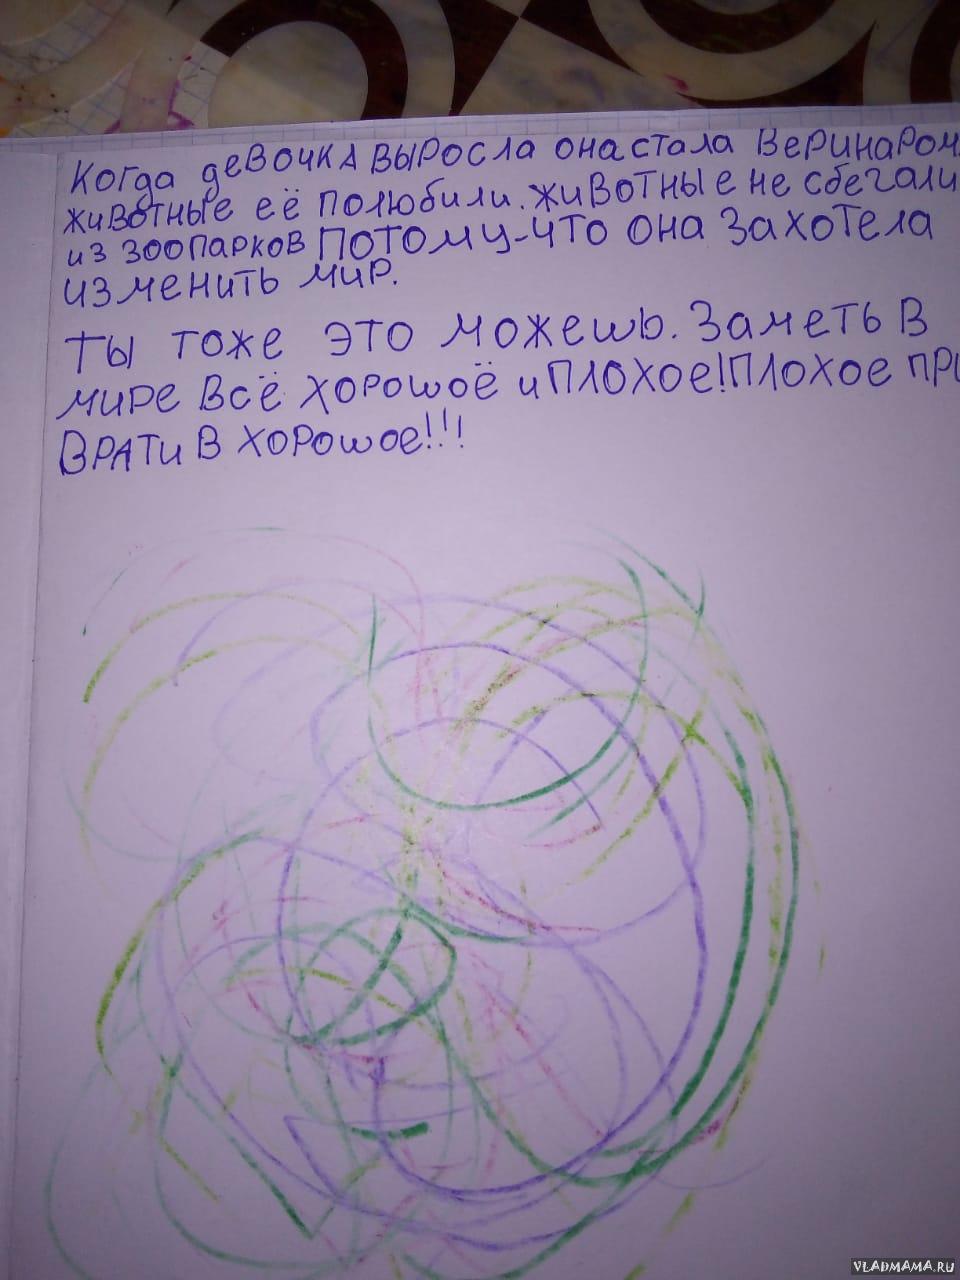 Когда девочка выросла она стала Веринаром.
животные её полюбили. животные не сбегали
из зоопарков потому-что она захотела
изменить мир.
Ты тоже это можешь. Заметь в
мире всё хорошоё и плохое! плохое при
врати в хорошое!!!
VLADMAMA.RU